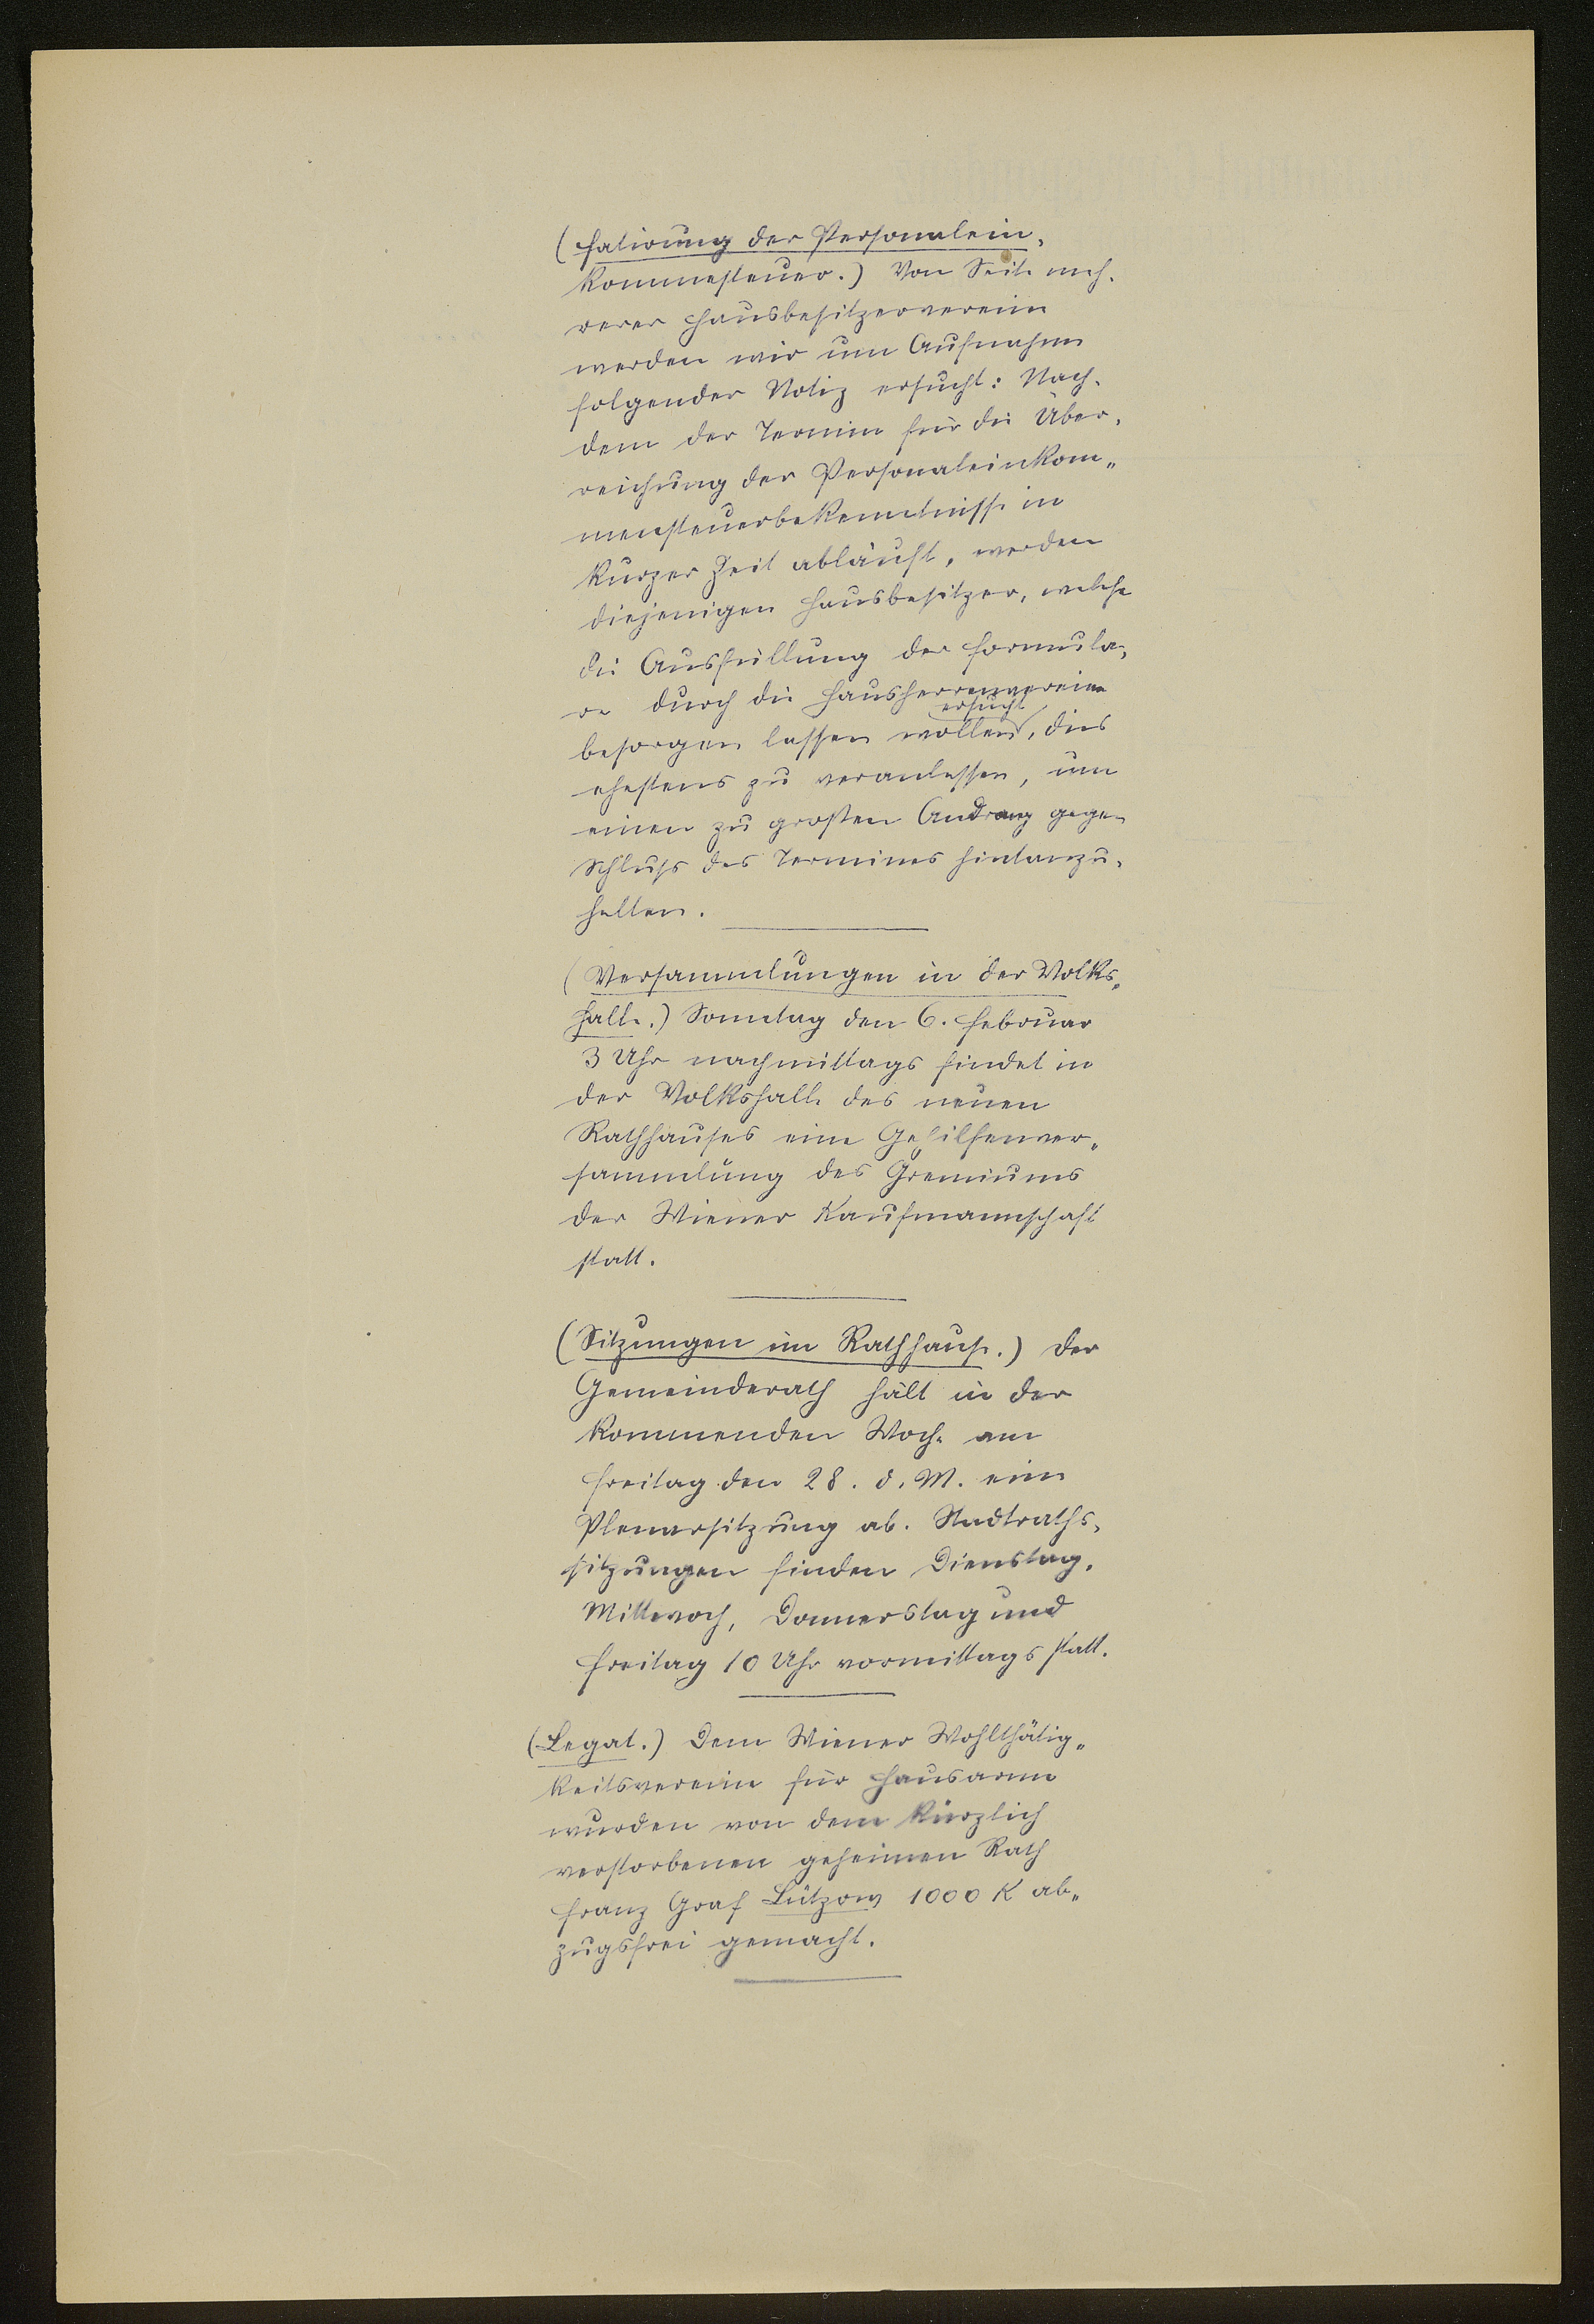 (Fatirung der Personalein-
kommesteuer.) Von Seite meh-
rerer Hausbesitzervereine
werden wir um Aufnahme
folgender Notiz ersucht: Nach-
dem der Termin für die Über-
reichung der Personaleinkom-
mensteuerbekenntnisse in
kurzer Zeit abläuft, werden
diejenigen Hausbesitzer, welche
die Ausfüllung der Formula-
re durch die Hausherrenvereine
ersucht
besorgen lassen wollen, dies
ehestens zu veranlassen, um
einen zu großen Andrang gegen
Schluß des Termines hintanzu-
halten.
(Versammlungen in der Volks-
halle.) Sonntag den 6. Februar
3 Uhr nachmittags findet in
der Volkshalle des neuen
Rathhauses eine Gehilfenver-
sammlung des Gremiums
der Wiener Kaufmannschaft
statt.
(Sitzungen im Rathhause.) Der
Gemeinderath hält in der
kommenden Woche am
Freitag den 28. d. M. eine
Plenarsitzung ab. Stadtraths-
sitzungen finden Dienstag,
Mittwoch, Donnerstag und
Freitag 10 Uhr vormittags statt.
(Legat.) Dem Wiener Wohlthätig-
keitsvereine für Hausarme
wurden von dem kürzlich
verstorbenen geheimen Rath
Franz Graf Lützow 1000 K ab-
zugsfrei gemacht.